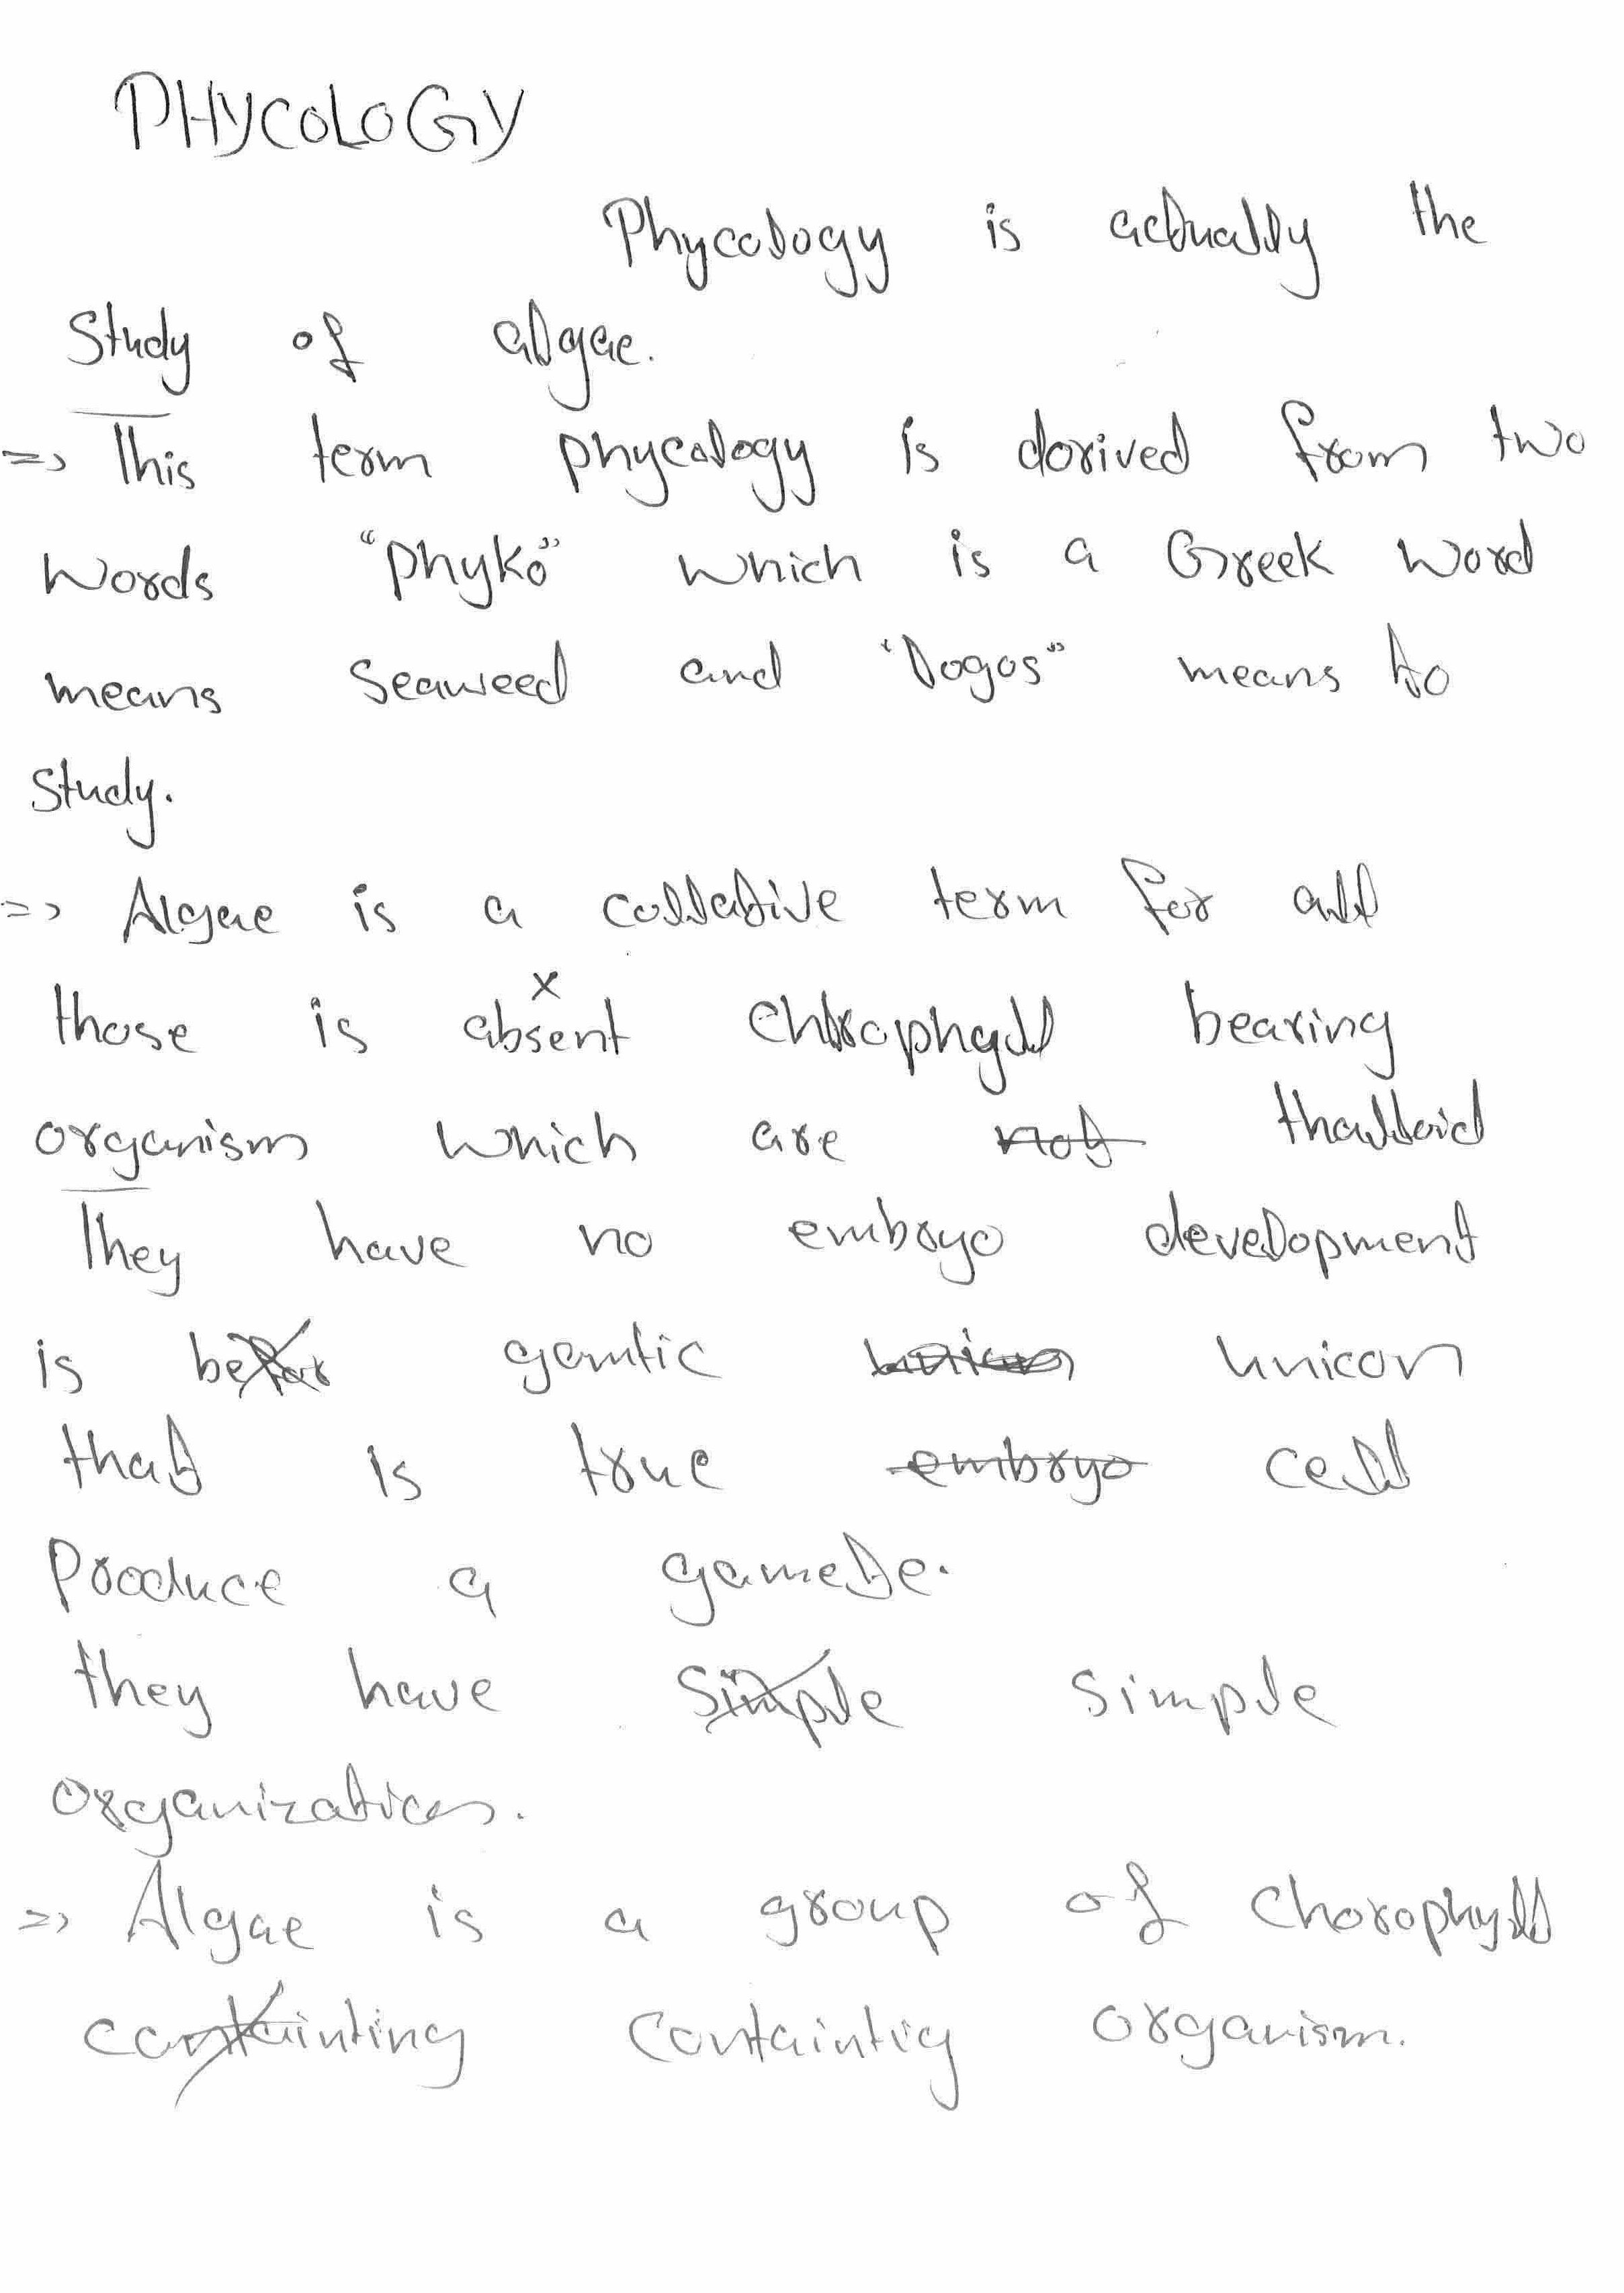 PHYCOLOGY
Phycology is actually the
Study of algae.
=> This term phycology is dorived from two
Words "phyko" which is a Greek word
means Seaweed and "logos" means to
Study.
=> Algae is a collative term for all
those is absent x chlrophyll bearing
organism which are not thalloid
They have no embryo development
is gemtic unicon
that is true embryo cell
Produce a gamete.
they have Simple simple
organization.
=> Algae is a group of chorophyll
containting containtig organism.